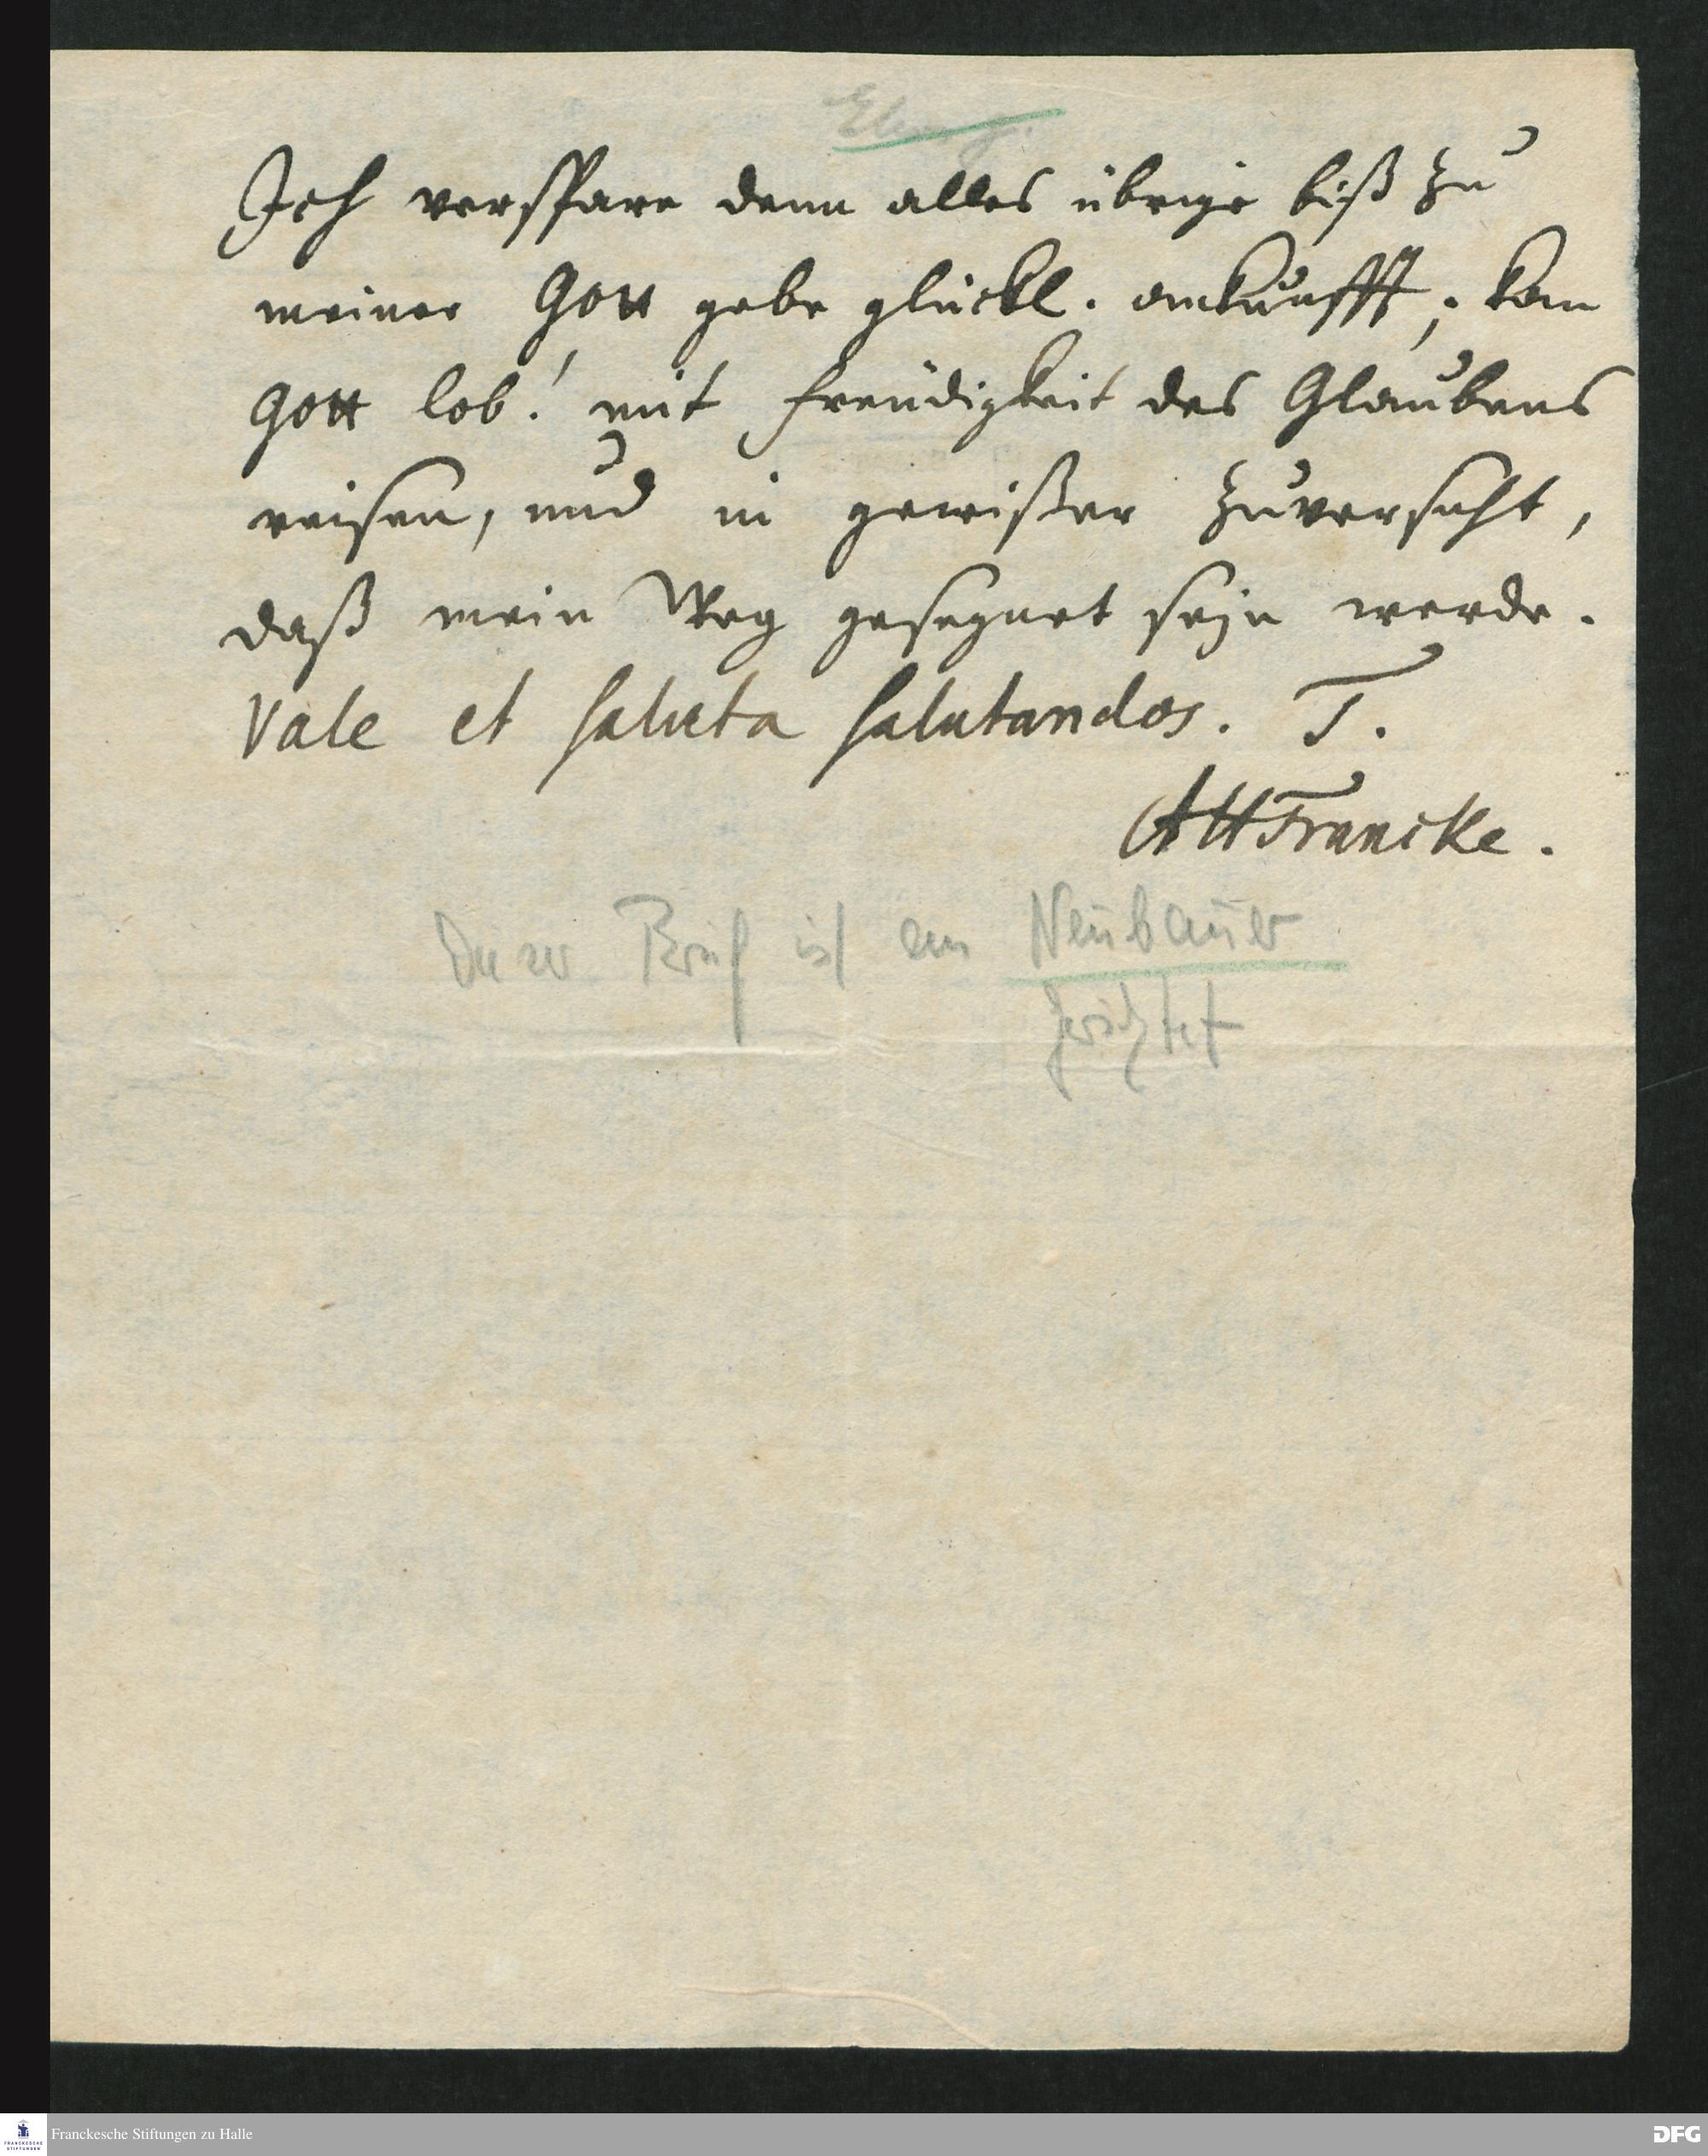 Ich verspare denn alles übrige biß zu
meiner Gott gebe glückl. ankunfft; kan
Gott lob! mit freüdigkeit des Glaubens
reisen, und in gewißer zuversicht,
daß mein Weg gesegnet seyn werde.
Vale et saluta salutandos. T.
AHFrancke.
Dieser Brief ist an Neubauer
gerichtet
Franckesche Stiftungen zu Halle
DFG